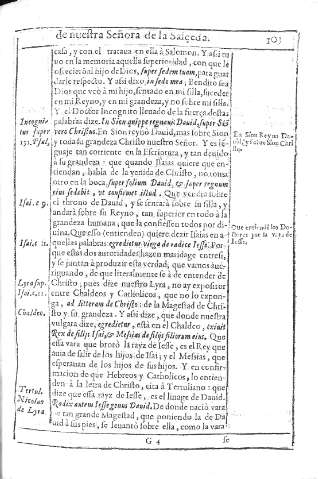 de nuestra Señora de la Salçeda.
103
casa, y con el trataua en ella à Salomon. Y assi tu
uo en la memoria aquella superioridad, con que le
ofrecieron al hijo de Dios, super sedem tuam, para guar
darle respecto. Y assi dixo, in sede mea. Bendito sea
Dios que veo à mi hijo, sentado en mi silla, suceder
en mi Reyno, y en mi grandeza, y no sobre mi silla.
Y el Doctor Incognito llenado de la fuerça destas
palabras dize. In Sion quippe regnauit Dauid, super Sio
vero Christus. En Sion reynò Dauid, mas sobre Sion
y toda su grandeza Christo nuestro Señor. Y es
guaje tan corriente en la Escriptura, y tan deuido
a su grandeza: que quando Isaias quiere que en
tiendan, habla de la venida de Christo, no toma
otro en la boca, super solium Dauid, & super regnum
eius sedebit, vt confirmet illud. Que vendra sobre
el throno de Dauid, y se sentarà sobre su silla, y
andarà sobre su Reyno, tan superior en todo à la
grandeza humana, que la confiessen todos por di
uina. Que esso (entienden) quiere dezir Isaias en a
quellas palabras: egredietur virga de radice Iesse. Por
que estas dos autoridades hazen maridage entre si,
y se juntan à produzir esta verdad, que vamos aue
riguando, de que literalmente se à de entender de
Christo; pues dize nuestro Lyra, no ay expositor
entre Chaldeos y Catholicos, que no lo expon-
ga, ad litteram de Christo: de la Magestad de Chri-
sto y su grandeza. Y assi dize, que donde nuestra
vulgara dize, egredietur, està en el Chaldeo, exiuit
Rex de filijs Isai, & Messias de filijs filiorum eius. Que
essa vara que brotò la rayz de Iesse, es el Rey que
auia de salir de los hijos de Isai; y el Messias, que
esperauan de los hijos de sus hijos. Y en confir-
macion de que Hebreos y Catholicos, lo entien-
den à la letra de Christo, cita à Tertuliano: que
dize que essa rayz de Iesse, es el linage de Dauid.
Radix autem Iesse genus Dauid. De donde nacia vara
de tan grande Magestad, que poniendo la de Da
uid à sus pies, se leuantò sobre ella, como la vara
G 4
se
Incogni-
tus super
131. Psal.
Isai. c. 9.
Isai. c. 11.
Lyra sup.
Isai. c. 11.
Chaldeo.
Tertul.
Nicolao
de Lyra.
En Sion Reyna Da-
uid, y sobre Sion Chri
sto.
Que entienden los Do-
ctores por la vara de
Iesse.